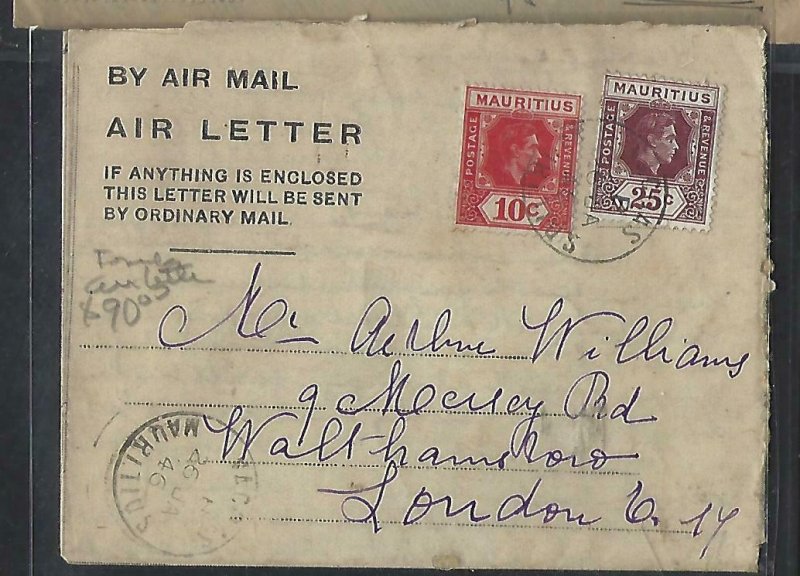 BY AIR MAIL
AIR LETTER
IF ANYTHING IS ENCLOSED
THIS LETTER WILL BE SENT
BY ORDINARY MAIL.
MAURITIUS
POSTAGE
& REVENUE
10c
MAURITIUS
POSTAGE
& REVENUE
25c
air letter
90
Mr Arthur Williams
9 Mersey Rd
Walthamstow
London E. 17
MAURITIUS
26 JA
46